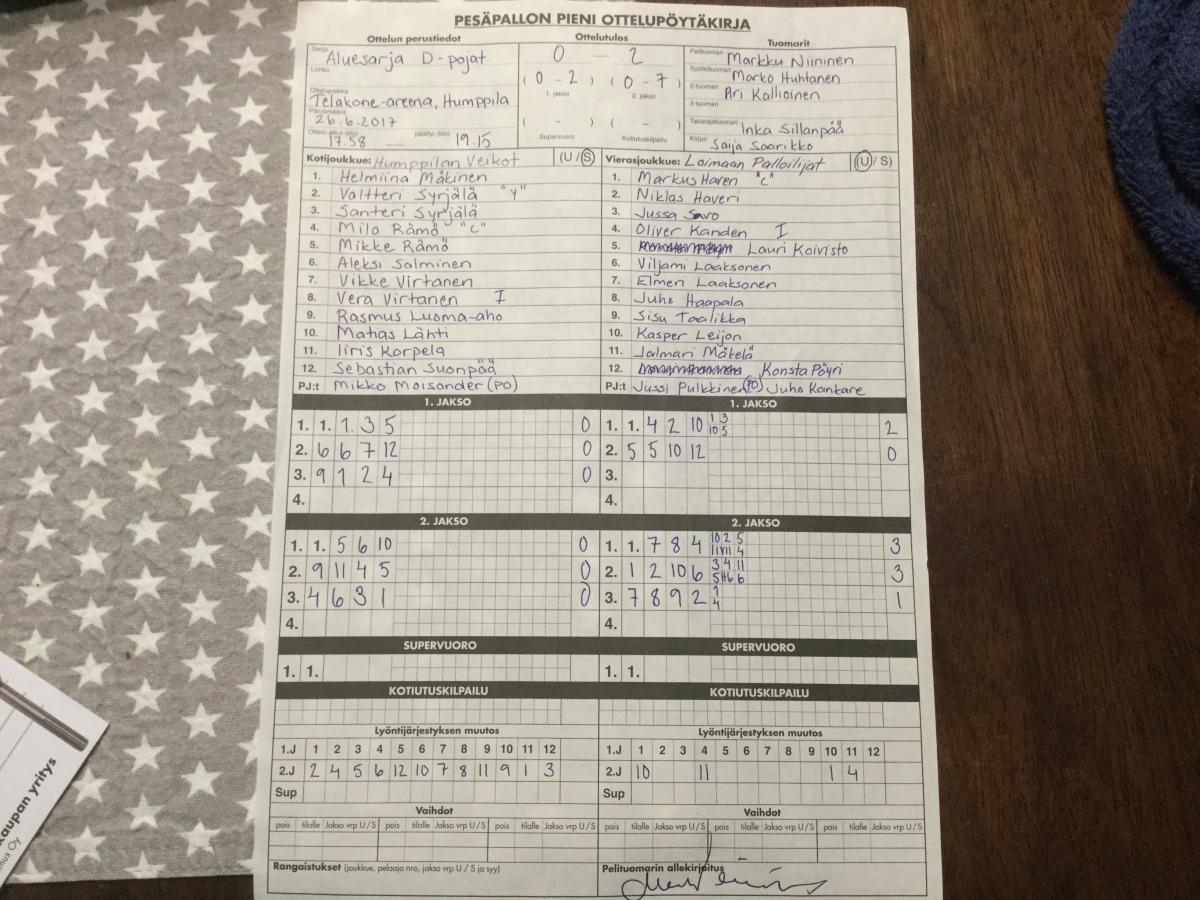 PESÄPALLON PIENI OTTELUPÖYTÄKIRJA
Ottelun perustiedot Ottelutulos Tuomarit
Sarja Aluesarja D-pojat 0 – 2 Pelituomari Markku Niininen
Lohko (0 - 2) (0 - 7) Syöttötuomari Marko Huhtanen
1. jakso 2. jakso 2-tuomari Ari Kallioinen
Ottelupaikka Telakone-areena, Humppila 3-tuomari
Päivämäärä 26.6.2017 ( - ) ( - ) Takarajatuomari Inka Sillanpää
Ottelu alkoi (klo) 17.58 — päättyi (klo) 19.15 Supervuoro Kotiutuskilpailu Kirjuri Saija Saarikko
Kotijoukkue: Humppilan Veikot (U / S) Vierasjoukkue: Loimaan Palloilijat (U / S)
1. Helmiina Mäkinen 1. Markus Haren "C"
2. Valtteri Syrjälä "Y" 2. Niklas Haveri
3. Santeri Syrjälä 3. Jussa Savo
4. Milo Rämö "C" 4. Oliver Kanden I
5. Mikke Rämö 5. Lauri Koivisto
6. Aleksi Salminen 6. Viljami Laaksonen
7. Vikke Virtanen 7. Elmeri Laaksonen
8. Vera Virtanen I 8. Juho Haapala
9. Rasmus Luoma-aho 9. Sisu Taalikka
10. Matias Lähti 10. Kasper Leijon
11. Iiris Korpela 11. Jalmari Mäkelä
12. Sebastian Suonpää 12. Konsta Pöyri
PJ:t Mikko Moisander (PO) PJ:t Jussi Pulkkinen (PO) Juho Kankare
1. JAKSO 1. JAKSO
1. 1. 1. 3 5 0 1. 1. 4 2 10 1 3 10 5 2
2. 6 6 7 12 0 2. 5 5 10 12 0
3. 9 1 2 4 0 3.
4. 4.
2. JAKSO 2. JAKSO
1. 1. 5 6 10 0 1. 1. 7 8 4 10 2 5 3
2. 9 11 4 5 0 2. 1 2 10 6 3 4 11 3
3. 4 6 3 1 0 3. 7 8 9 2 1 4 1
4. 4.
SUPERVUORO SUPERVUORO
1. 1. 1. 1.
KOTIUTUSKILPAILU KOTIUTUSKILPAILU
Lyöntijärjestyksen muutos Lyöntijärjestyksen muutos
1.J 1 2 3 4 5 6 7 8 9 10 11 12 1.J 1 2 3 4 5 6 7 8 9 10 11 12
2.J 2 4 5 6 12 10 7 8 11 9 1 3 2.J 10 11 1 4
Sup Sup
Vaihdot Vaihdot
pois tilalle Jakso vrp U/S pois tilalle Jakso vrp U/S pois tilalle Jakso vrp U/S pois tilalle Jakso vrp U/S pois tilalle Jakso vrp U/S pois tilalle Jakso vrp U/S
Rangaistukset (joukkue, pelaaja nro, jakso vrp U / S ja syy) Pelituomarin allekirjoitus
kaupan yritys
Oy